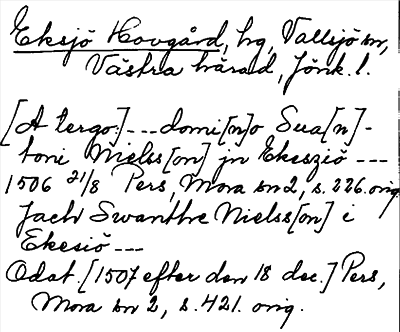 Eksjö Hovgård, hg, Vallsjö sn,
Västra härad, Jönk. l.
[A tergo:] --- domi[n]o Sua[n]-
toni Nielss[on] jn Ekesziö ---
1506 21/8 Pers, Mora sn 2, s. 226. orig.
Jach Swanthe Nielss[on] i
Ekesiö ---
Odat. [1507 efter den 18 dec.] Pers,
Mora sn 2, s. 421. orig.